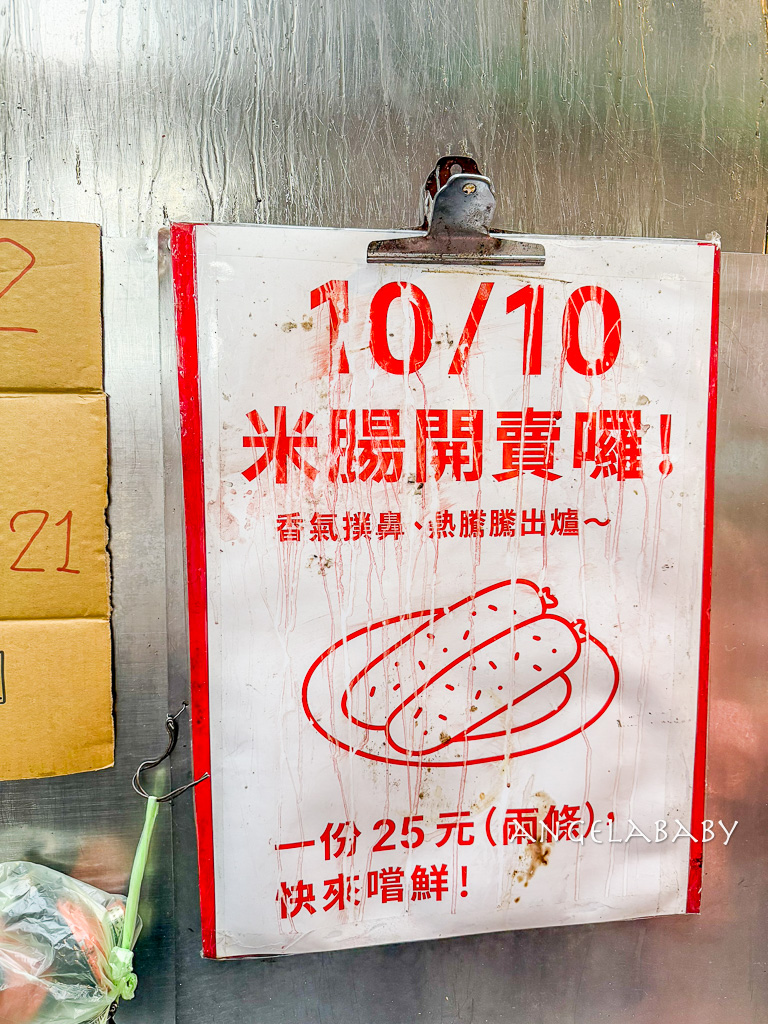 2
21
10/10
米腸開賣囉!
香氣撲鼻、熱騰騰出爐~
一份25元(兩條),
快來嚐鮮!
ANGELABABY